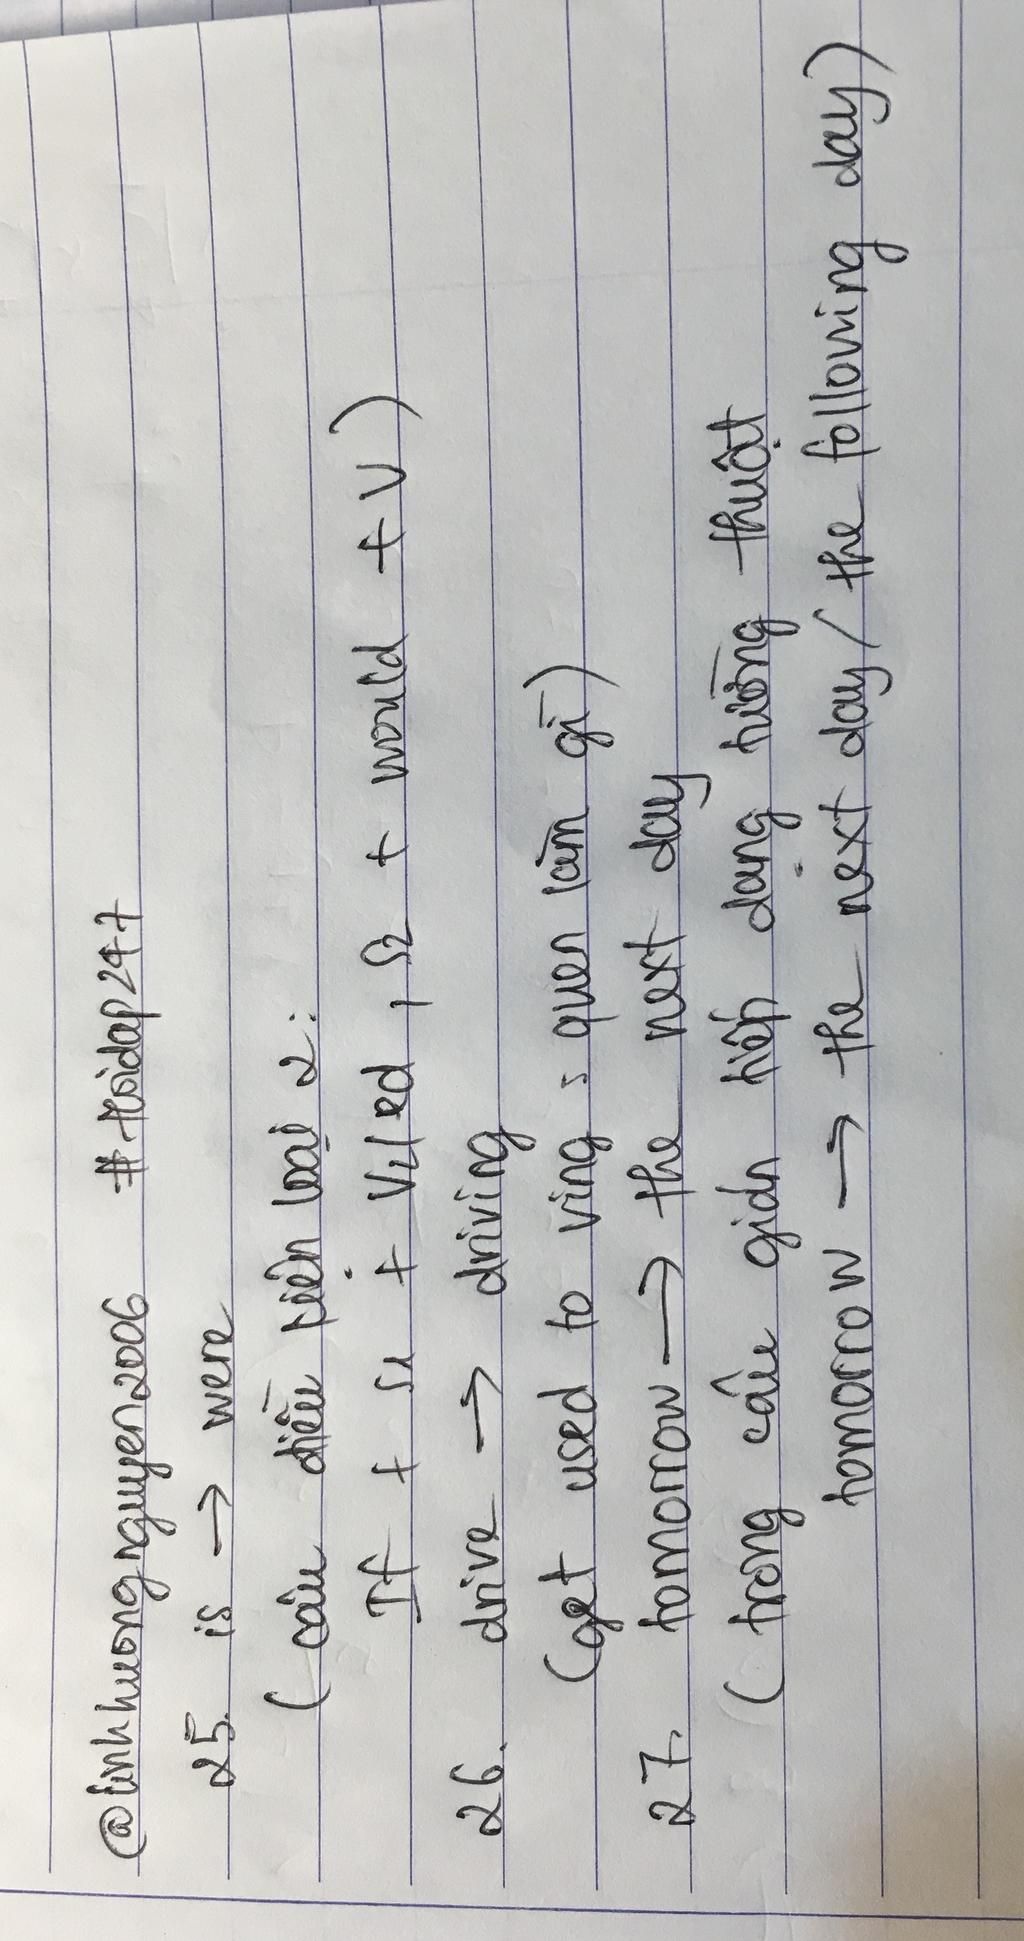 @linhhuongnguyen2006 #Hoidap247
25. is → were
(câu điều kiện loại 2:
If + S1 + V2/ed, S2 + would + V)
26. drive → driving
(get used to Ving : quen làm gì)
27. tomorrow → the next day
(trong câu gián tiếp dạng tường thuật
tomorrow → the next day/ the following day)